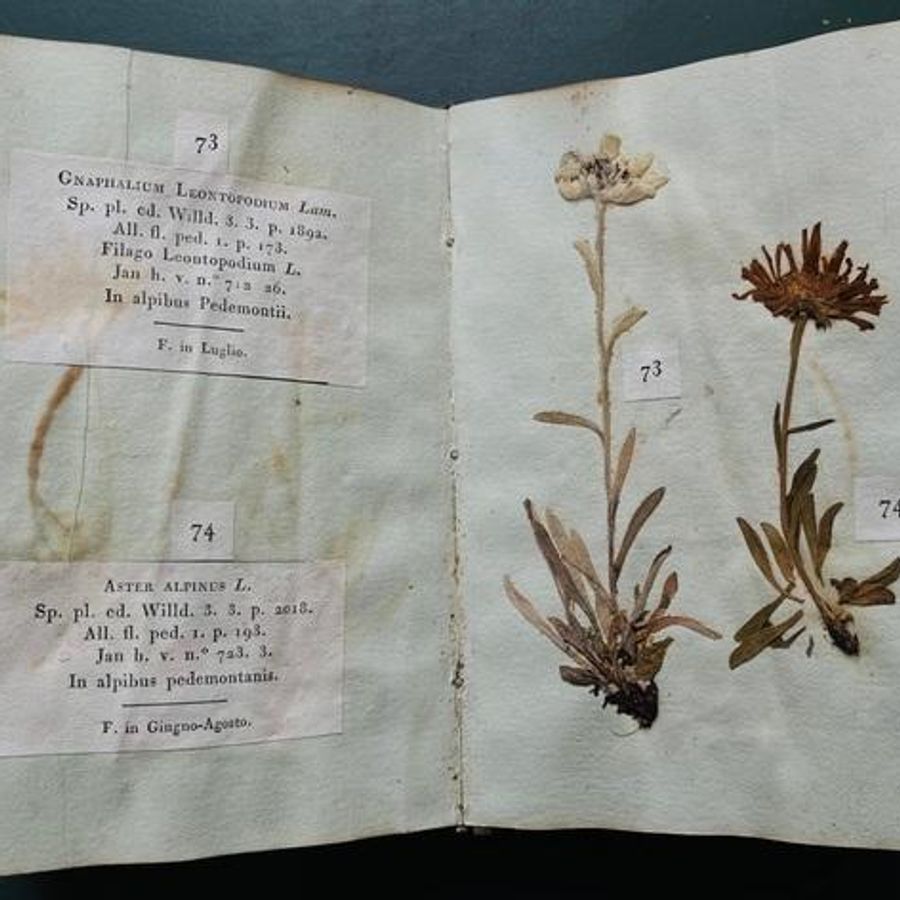 73
GNAPHALIUM LEONTOPODIUM Lam.
Sp. pl. ed. Willd. 3. 3. p. 1892.
All. fl. ped. 1. p. 173.
Filago Leontopodium L.
Jan h. v. n.° 712 26.
In alpibus Pedemontii.
F. in Luglio.
74
ASTER ALPINUS L.
Sp. pl. ed. Willd. 3. 3. p. 2018.
All. fl. ped. 1. p. 193.
Jan h. v. n.° 723. 3.
In alpibus pedemontanis.
F. in Giugno-Agosto.
73
74